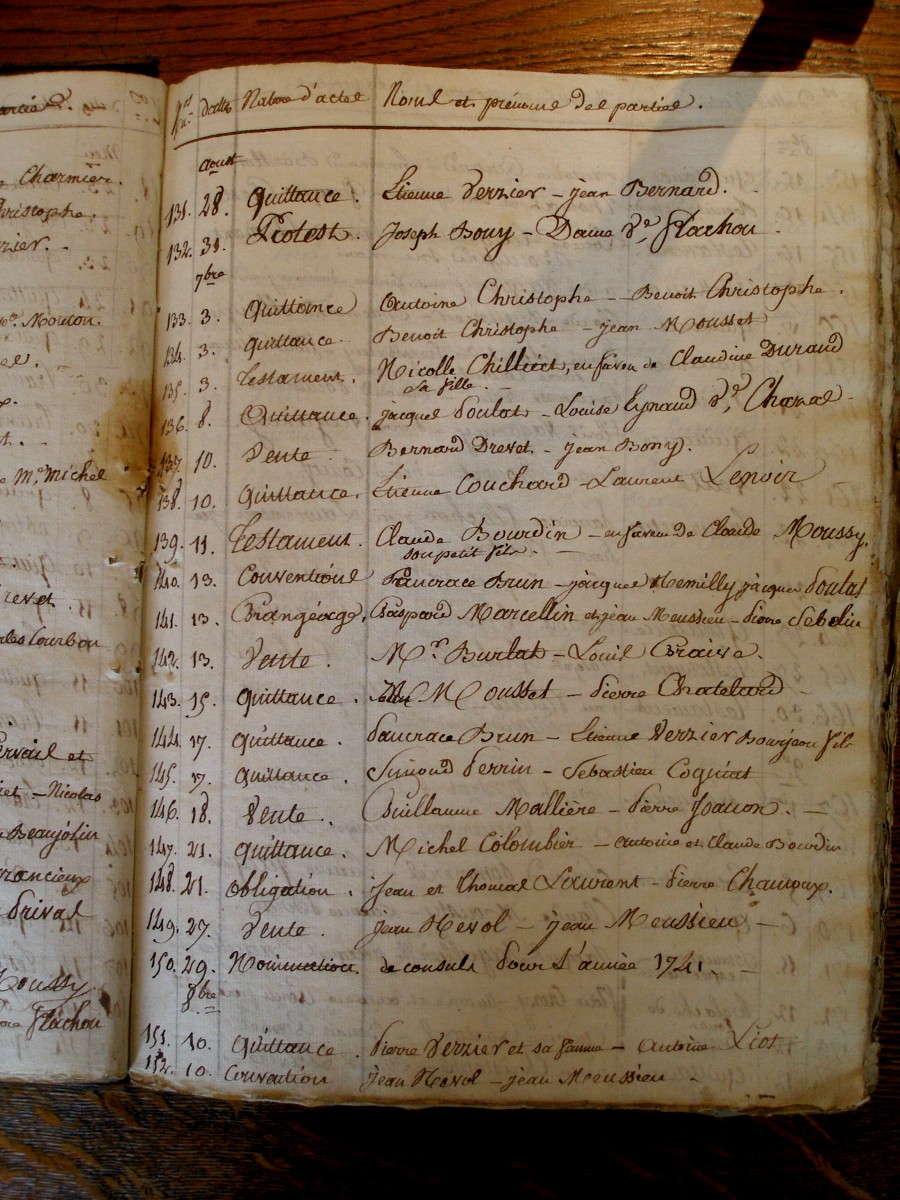 Charmier.
Christophe.
Mouton.
Me Michel
revet.
Courbon
ervail et
Nicolas
Beaujolin
rancieux
Prival
Moussy.
Flachou
dattes Nature d'actes Noms et prénoms des parties.
aoust
131. 28. Quittance. Etienne Verzier - jean Bernard.
132. 31. Protest. Joseph Bouy - Dame Ve Flachou.
7bre
133. 3. Quittance Antoine Christophe - Benoit Christophe.
134. 3. quittance. Benoit Christophe - jean Mousset
135. 3. Testament. Nicolle Chilliet, en faveu de Claudine Durand
sa fille.
136. 8. Quittance. jacques Poulat - Louise Eynaud Ve Chazal -
137. 10. Vente. Bernard Drevet - jean Bony.
138. 10. quittance. Etienne Couchoud - Laurent Lenoir
139. 11. Testament. Claude Bourdin - en faveu de Claude Moussy,
son petit fils. -
140. 13. Conventions Pancrace Brun - jacques Remilly jacques Poulat
141. 13. Gaspard Marcellin et jean Meussieu - Pierre Sebelin
142. 13. Vente. Mr. Burlat - Louis Graive.
143. 15. quittance. Mousset - Pierre Chatelard -
144. 17. quittance. Pancrace Brun - Etienne Verzier Bourjeon fils
145. 17. quittance. Simond Perrin - Sebastien Cogniat
146. 18. Vente. Guillaume Mallière - Pierre Joanon. -
147. 21. quittance. Michel Colombier - Antoine et Claude Bourdin
148. 21. obligation. jean et Thomas Laurent - Pierre Chanoux.
149. 27. Vente. jean Revol - jean Meussieu -
150. 29. Nomination de consuls Pour l'année 1741. -
8bre
151. 10. quittance. Pierre Verzier et sa famme - Antoine Liot
152. 10. Convention jean Revol - jean Meussieu -